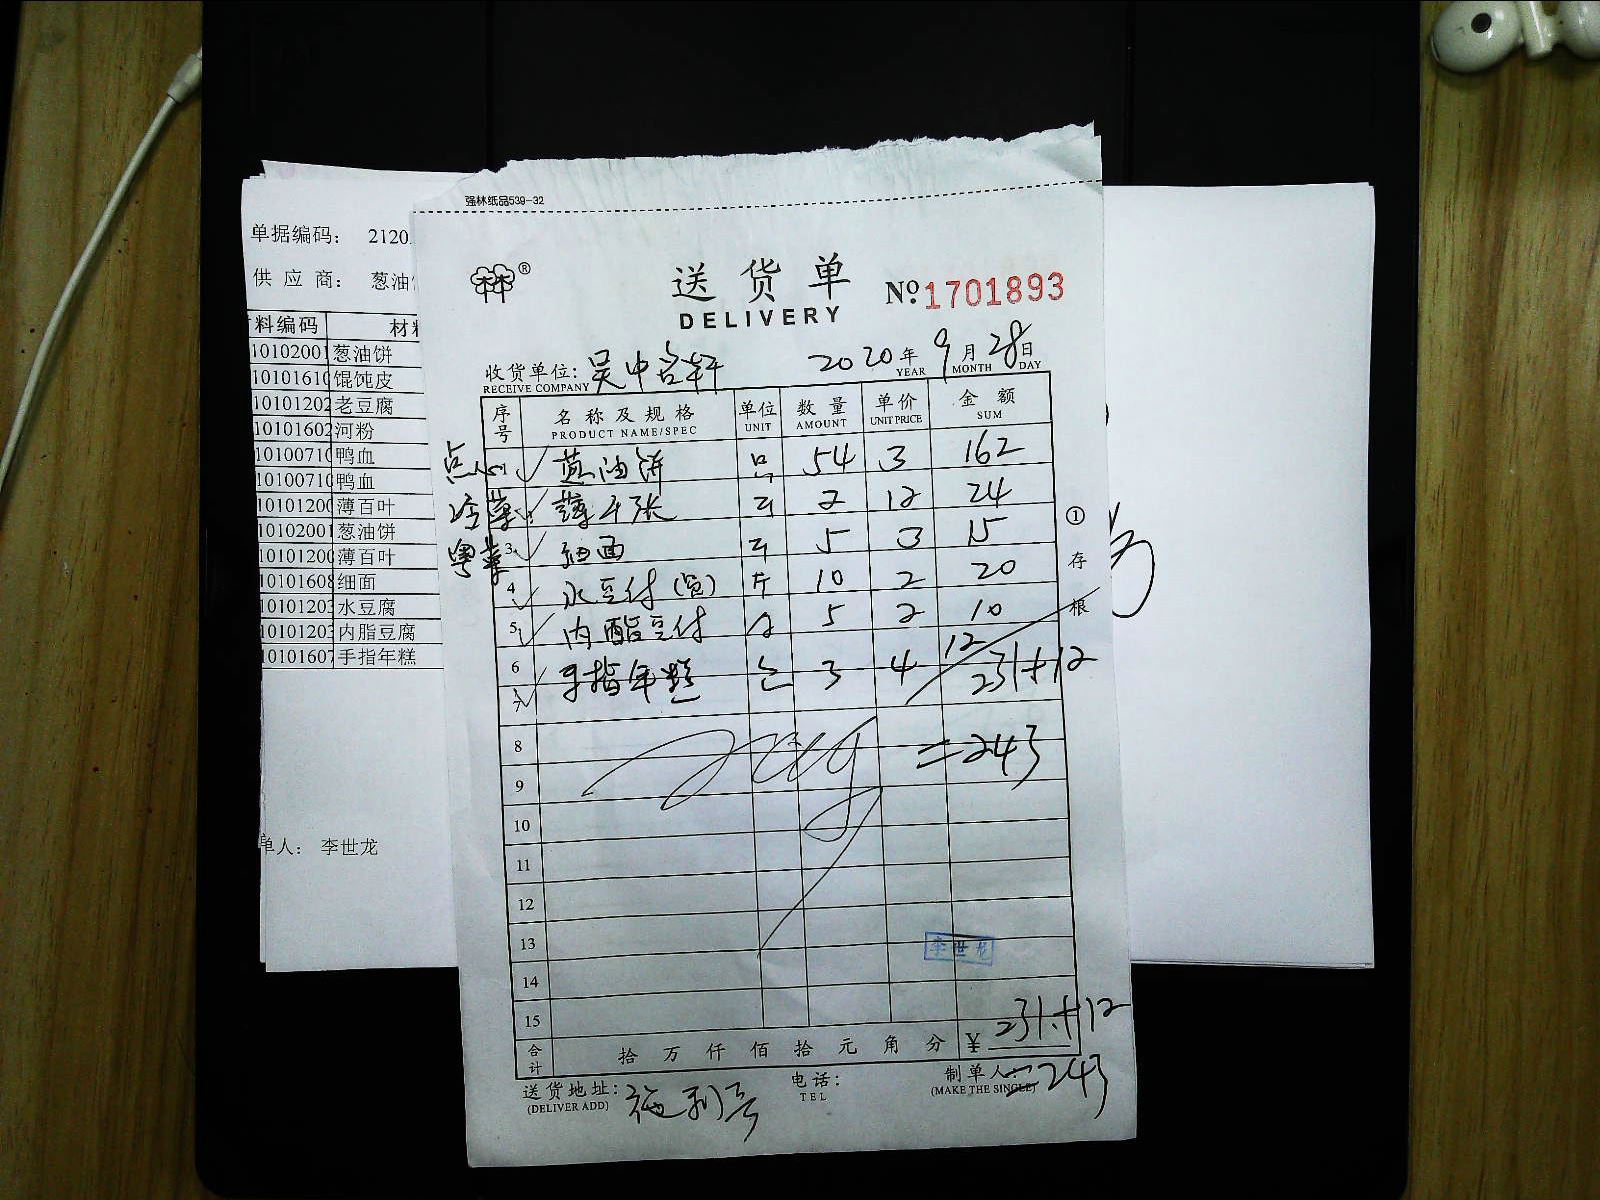 强林纸品539-32
单据编码： 2120
供 应 商： 葱油
料编码 材料
10102001 葱油饼
1010161 馄饨皮
10101202 老豆腐
10101602 河粉
1010071 鸭血
1010071 鸭血
1010120 薄百叶
10102001 葱油饼
1010120 薄百叶
10101608 细面
10101203 水豆腐
10101203 内脂豆腐
10101607 手指年糕
单人： 李世龙
®
送 货 单
DELIVERY
№ 1701893
收货单位： 吴中宫轩 2020 年 9 月 28 日
RECEIVE COMPANY YEAR MONTH DAY
序号 名 称 及 规 格 单位 数 量 单价 金 额
PRODUCT NAME/SPEC UNIT AMOUNT UNIT PRICE SUM
点心 1 葱油饼 只 54 3 162
冷菜 2 薄千张 斤 2 12 24
粤菜 3 细面 斤 5 3 15
4 水豆付 斤 10 2 20
5 内酯豆付 5 2 10
6 手指年糕 3 4 12
7 231+12
8 =243
9
10
11
12
13
李世龙
14
15
合计 拾 万 仟 佰 拾 元 角 分 ¥ 231.+12
=243
送货地址： 电话： 制单人：
(DELIVER ADD) TEL (MAKE THE SINGLE)
①
存
根